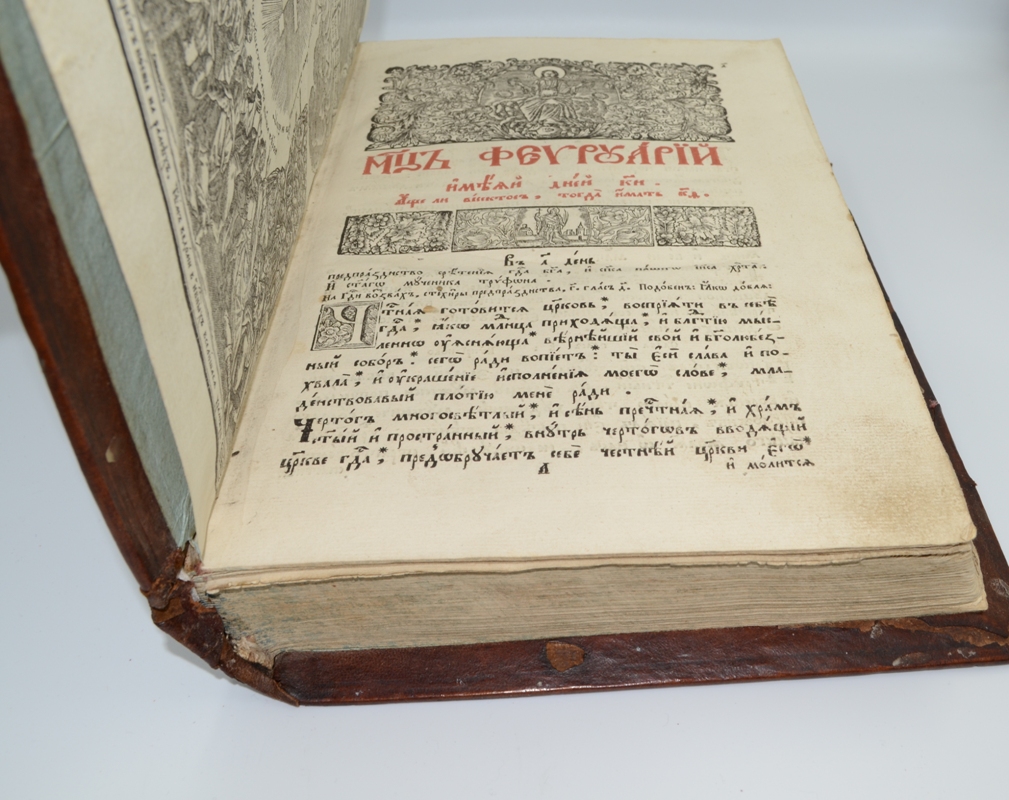 М҃ЦЪ ФЕѴРꙋА́РЇЙ
и҆мѣ́ѧй дні́й к҃и.
А҆́ще ли висе́ктосъ, тогда̀ и҆́мать к҃ѳ.
Въ а҃ де́нь
предпра́зднство срѣ́тенїѧ гдⷭ҇а бг҃а, и҆ сп҃са на́шегѡ і҆и҃са хрⷭ҇та̀:
И҆ ст҃а́гѡ мꙋ́ченика трѵ́фѡна.
На гдⷭ҇и воззва́хъ, стїхи́ры предпра́зднства, г҃. гла́съ а҃. Подо́бенъ: ꙗ҆́кѡ до́блѧ:
Чⷭ҇тна́ѧ гото́витсѧ цр҃ковь, воспрїѧ́ти въ себѣ̀
гдⷭ҇а, ꙗ҆́кѡ млⷣнца приходѧ́ща, и҆ блгⷣтїю мы́с-
леннѡ ᲂу҆ѧснѧ́юща вѣрнѣ́йшїй сво́й и҆ бг҃олюбе́з-
ный собо́ръ: сегѡ̀ ра́ди вопїе́тъ: ты̀ є҆сѝ сла́ва и҆ по-
хвала̀, и҆ ᲂу҆краше́нїе и҆сполне́нїѧ моегѡ̀ сло́ве, мла-
де́нствовавый пло́тїю менє̀ ра́ди.
Черто́гъ многосвѣ́тлый, и҆ сѣ́нь пречⷭ҇тна́ѧ, и҆ хра́мъ
ст҃ы́й и҆ простра́нный, внꙋ́трь черто́гѡвъ вводѧ́щїй
цр҃кве гдⷭ҇а, предѡбрꙋча́етъ себѐ честнѣ́й цр҃кви є҆гѡ̀
А
и҆ мо́литсѧ